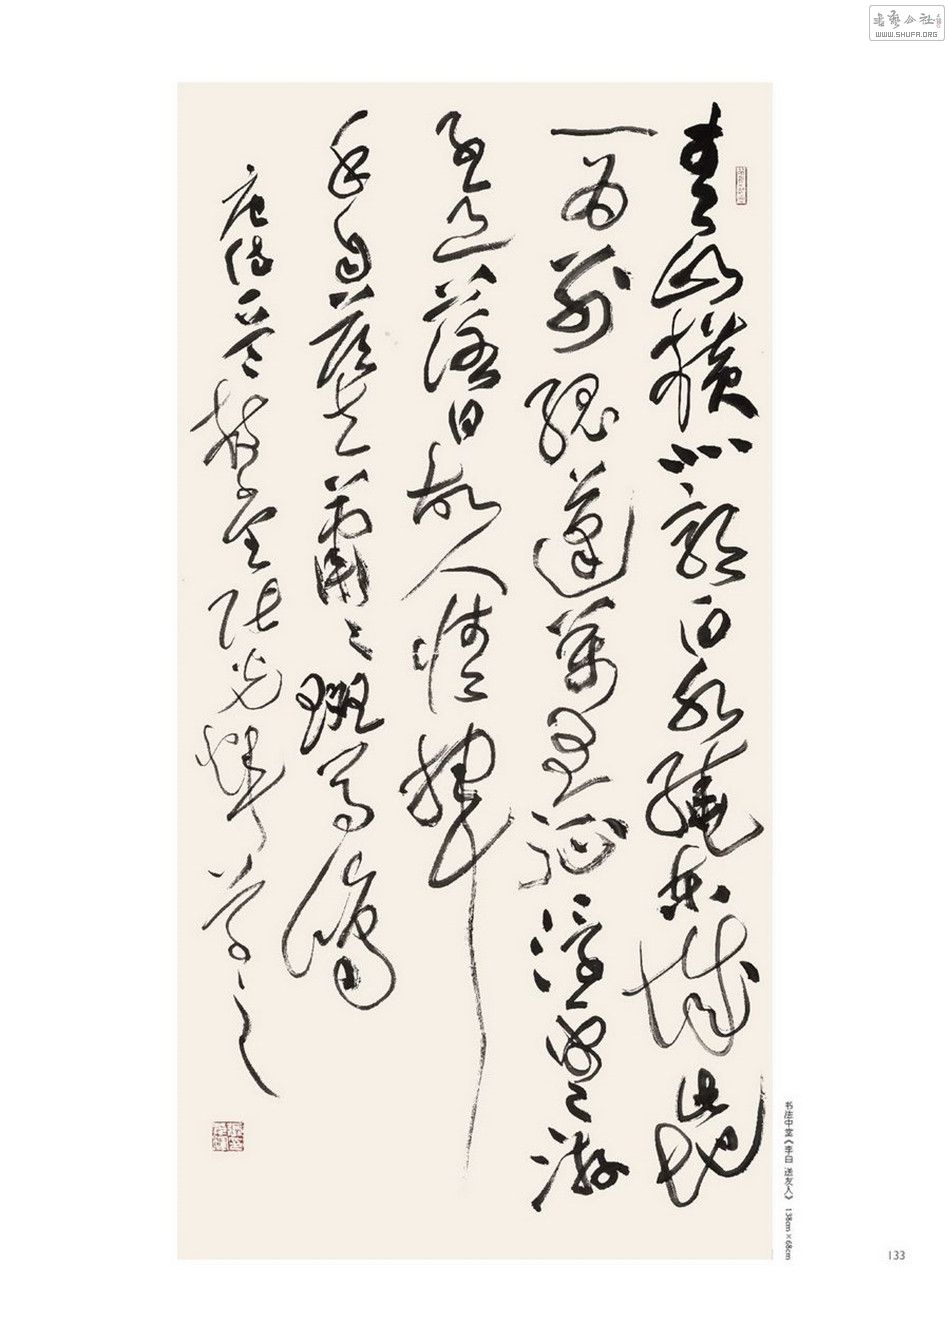 書藝公社
WWW.SHUFA.ORG
青山橫北郭白水繞東城此地
一為別孤蓬萬里征浮雲游
子意落日故人情揮
手自茲去蕭〻班馬鳴
唐詩一首 堂張光
书法中堂《李白 送友人》 138cm×68cm
133